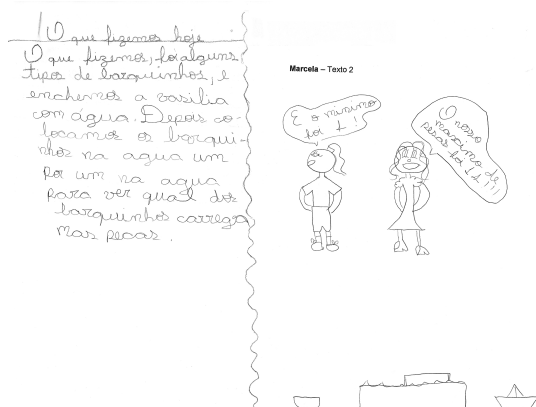 O que fizemos hoje
O que fizemos, foi alguns
tipos de barquinhos, e
enchemos a vasilia
com água. Depois co-
locamos os barqui-
nhos na agua um
por um na agua
para ver qual dos
barquinhos carrega
mas pecas.
Marcela – Texto 2
E o minimo
foi 1!
O nosso
maximo de
pesas foi 11!!!